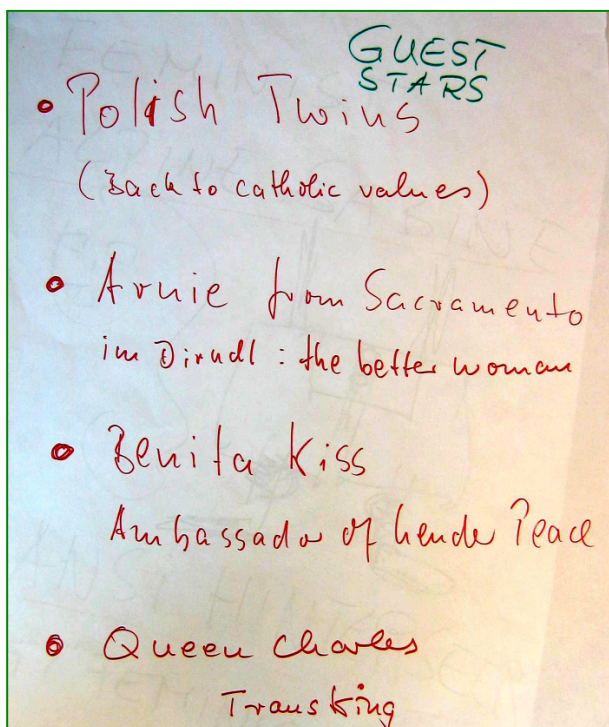 GUEST
STARS
• Polish Twins
(Back to catholic values)
• Arnie from Sacramento
im Dirndl : the better woman
• Benita Kiss
Ambassador of Gender Peace
• Queen Charles
Transking